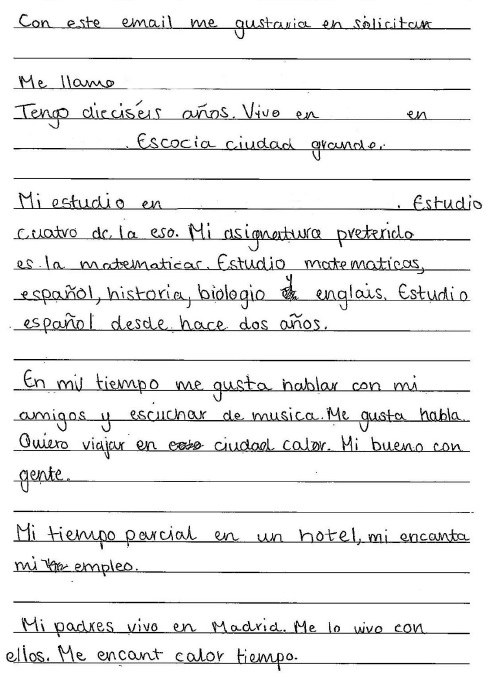 Con este email me gustaria en solicitar
Me llamo
Tengo dieciséis años. Vivo en en
. Escocia ciudad grande.
Mi estudio en . Estudio
cuatro de la eso. Mi asignatura preferido
es la matematicas. Estudio matematicas,
español, historia, biologio y englais. Estudio
español desde hace dos años.
En mis tiempo me gusta hablar con mi
amigos y escuchar de musica. Me gusta habla.
Quiero viajar en ciudad calor. Mi bueno con
gente.
Mi tiempo parcial en un hotel, mi encanta
mi empleo.
Mi padres vivo en Madrid. Me lo vivo con
ellos. Me encant calor tiempo.